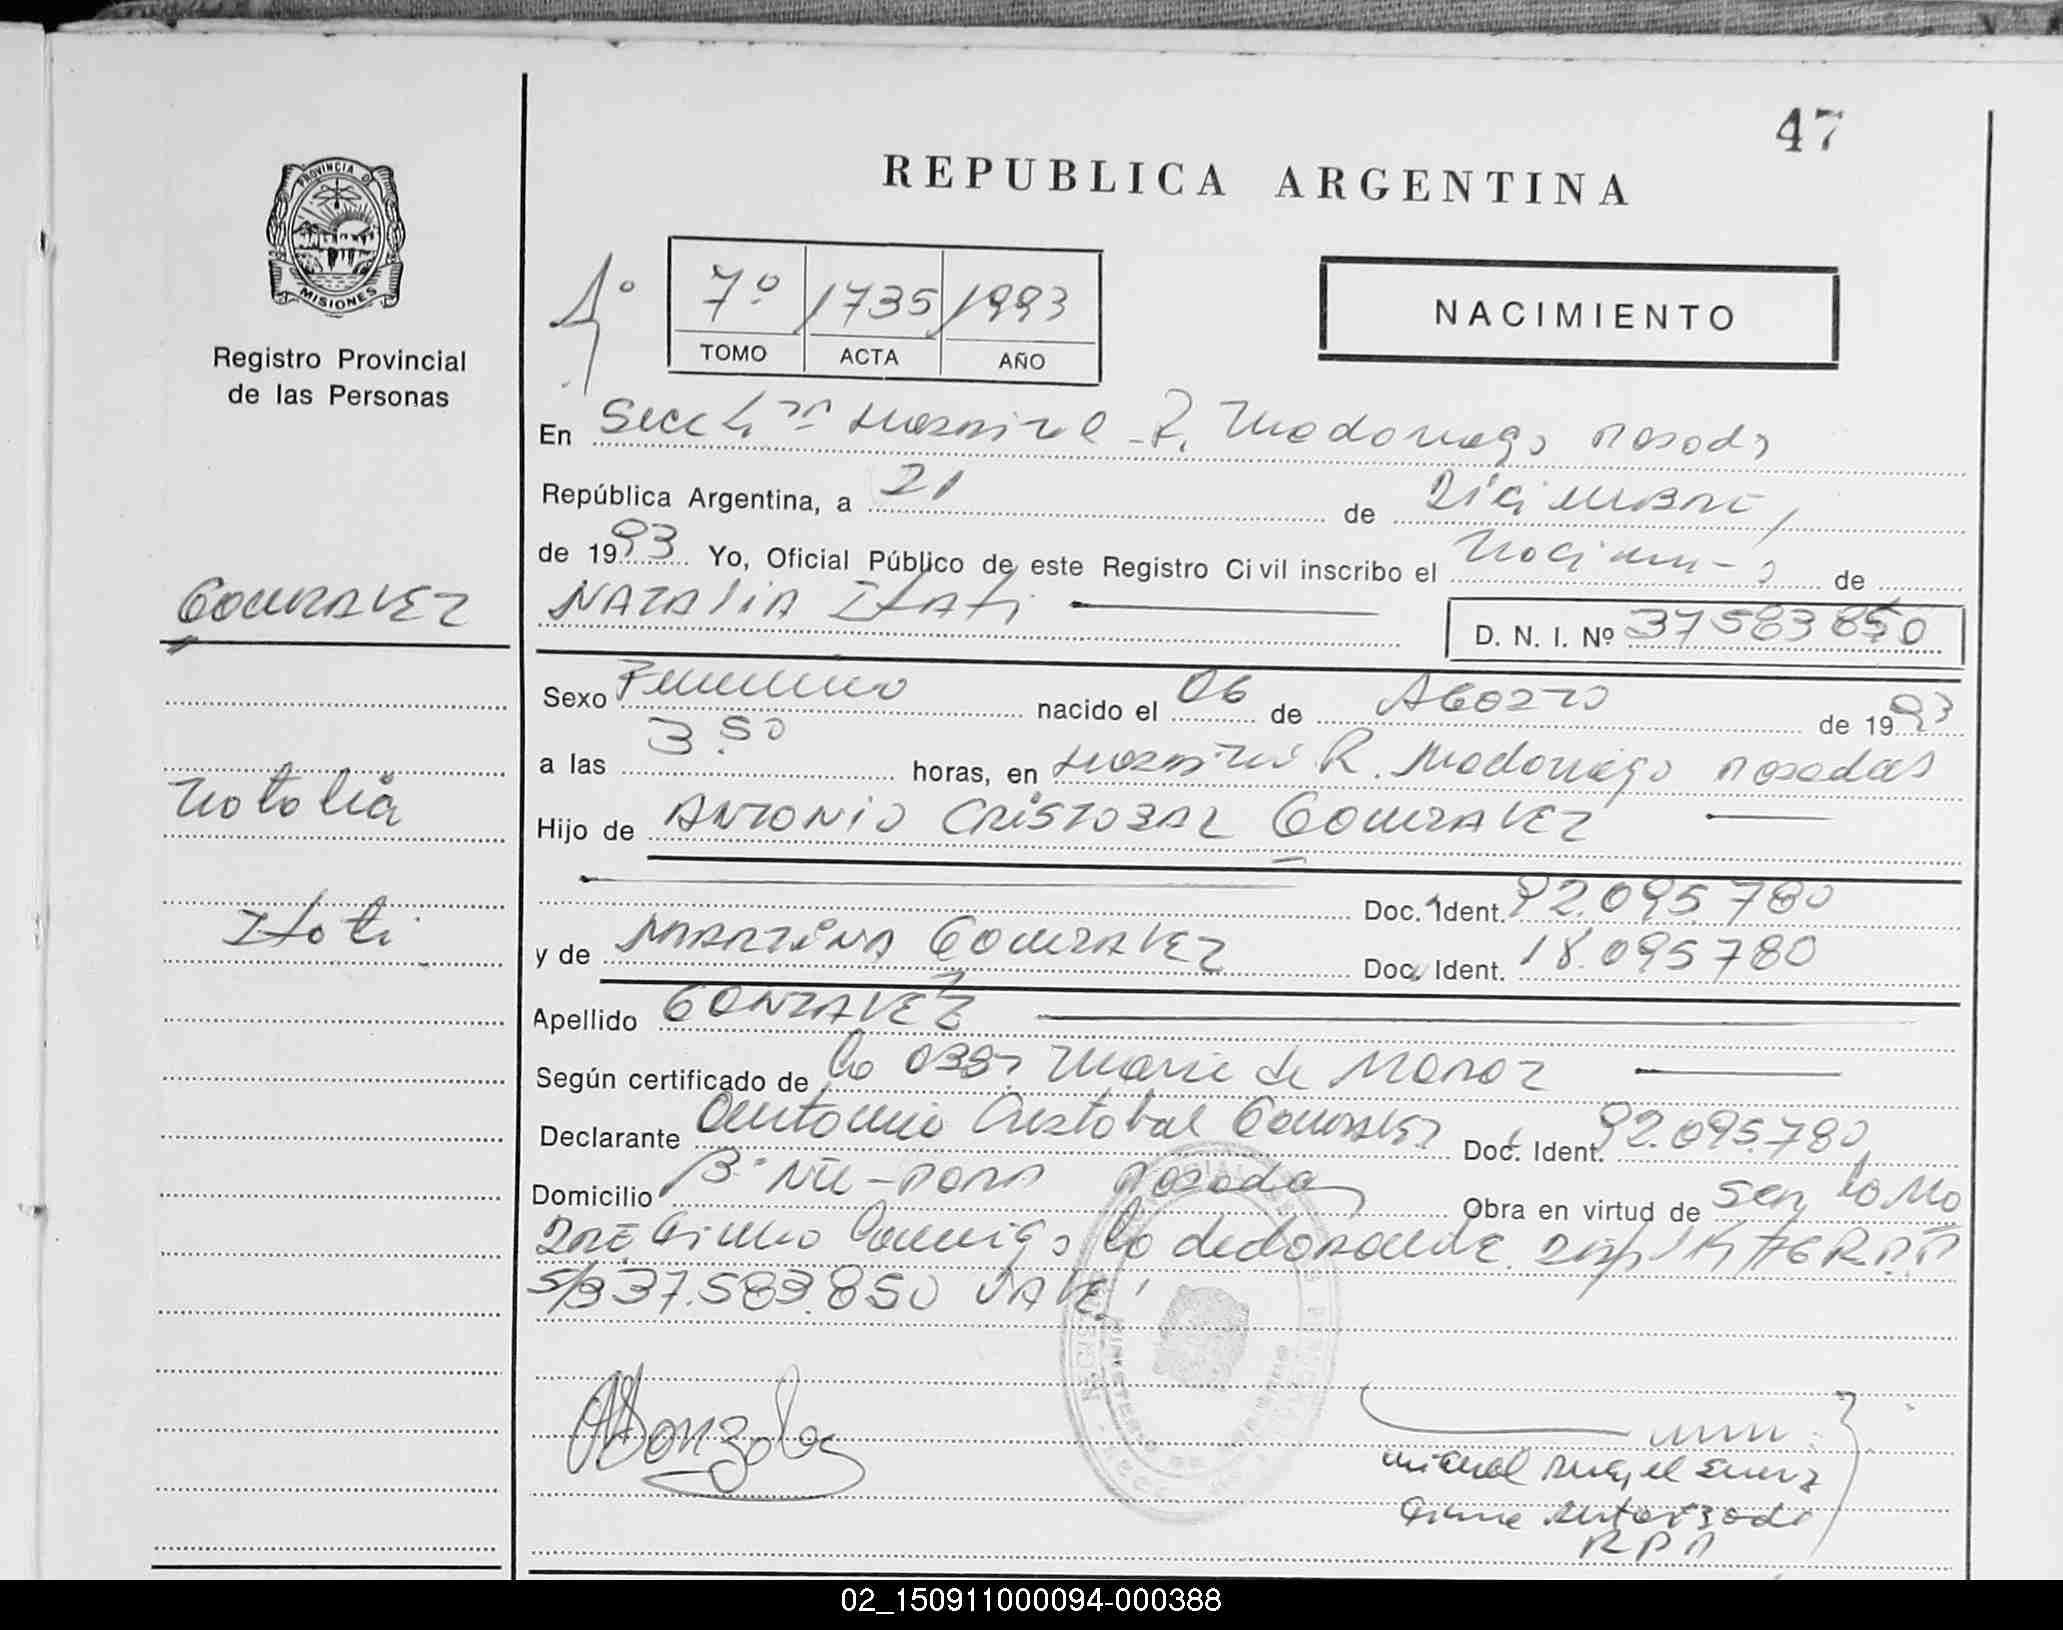 47
REPUBLICA ARGENTINA
PROVINCIA D
MISIONES
Registro Provincial
de las Personas
1º
7º 1735 1993
TOMO ACTA AÑO
NACIMIENTO
En Secc 4ta Hospital R. Madariaga Posadas
República Argentina, a 21 de Diciembre,
de 1993 Yo, Oficial Público de este Registro Civil inscribo el de
NATALIA ITATI
D. N. I. Nº 37583850
GONZALEZ
Natalia
Itati
Sexo Femenino nacido el 06 de AGOSTO de 1993
a las 3.50 horas, en Hospital R. Madariaga Posadas
Hijo de ANTONIO CRISTOBAL GONZALEZ
Doc. Ident. 92.095.780
y de MARTINA GONZALEZ Doc. Ident. 18.095780
Apellido GONZALEZ
Según certificado de la Obst. Maria de
Declarante Antonio Cristobal Gonzalez Doc. Ident. 92.095.780,
Domicilio Bº Posadas Obra en virtud de ser
lo declarande Disp
S/B 37.583.850 VALE
AGonzalez
MINISTERIO DE
Miguel Angel
Firma Autorizada
RPP
02_150911000094-000388